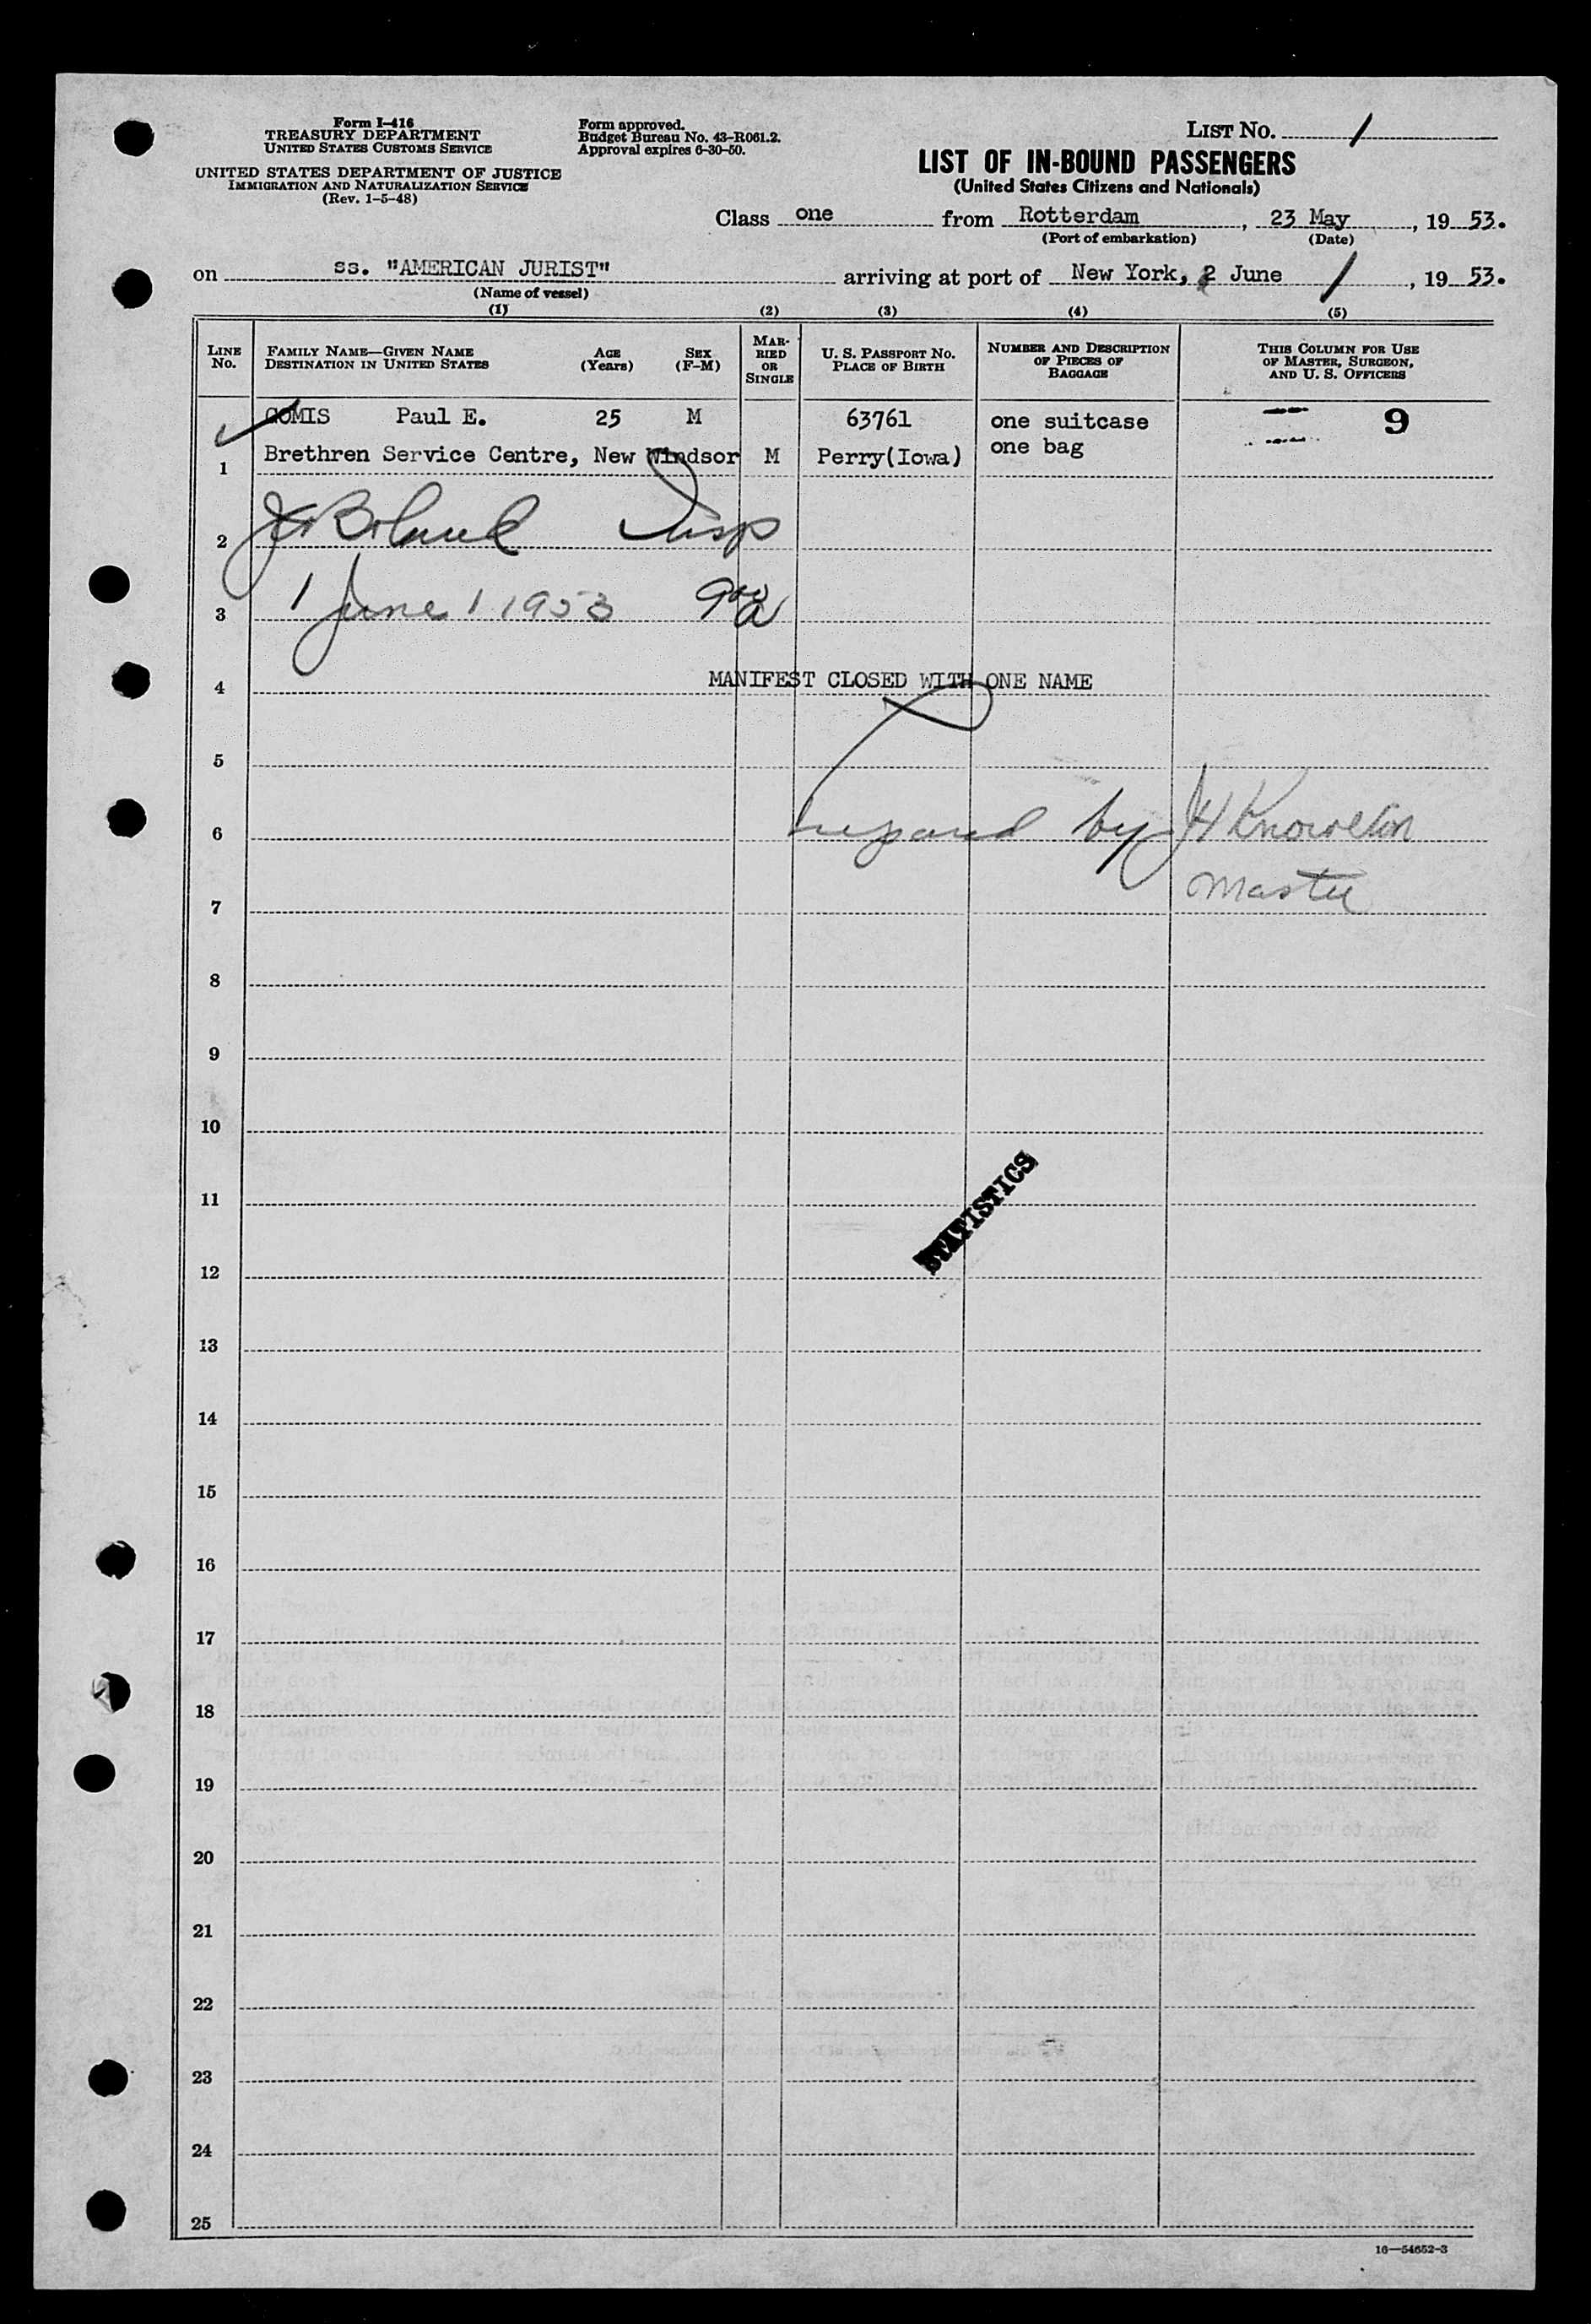 Form I-416
TREASURY DEPARTMENT
UNITED STATES CUSTOMS SERVICE
UNITED STATES DEPARTMENT OF JUSTICE
IMMIGRATION AND NATURALIZATION SERVICE
(Rev. 1-5-48)
Form approved.
Budget Bureau No. 43-R061.2.
Approval expires 6-30-50.
LIST No. 1
LIST OF IN-BOUND PASSENGERS
(United States Citizens and Nationals)
Class one from Rotterdam, 23 May, 19 53.
(Port of embarkation) (Date)
on ss. "AMERICAN JURIST" arriving at port of New York, 2 June 1, 19 53.
(Name of vessel)
(1) (2) (3) (4) (5)
LINE No. FAMILY NAME—GIVEN NAME DESTINATION IN UNITED STATES AGE (Years) SEX (F-M) MARRIED OR SINGLE U. S. PASSPORT No. PLACE OF BIRTH NUMBER AND DESCRIPTION OF PIECES OF BAGGAGE THIS COLUMN FOR USE OF MASTER, SURGEON, AND U. S. OFFICERS
COMIS Paul E. 25 M 63761 one suitcase 9
1 Brethren Service Centre, New Windsor M Perry(Iowa) one bag
2 Insp
3 1 June 1 1953 9 00 a
4 MANIFEST CLOSED WITH ONE NAME
5
6 Prepared by JH Knowlton
7 Master
8
9
10
11
STATISTICS
12
13
14
15
16
17
18
19
20
21
22
23
24
25
16—54652-3